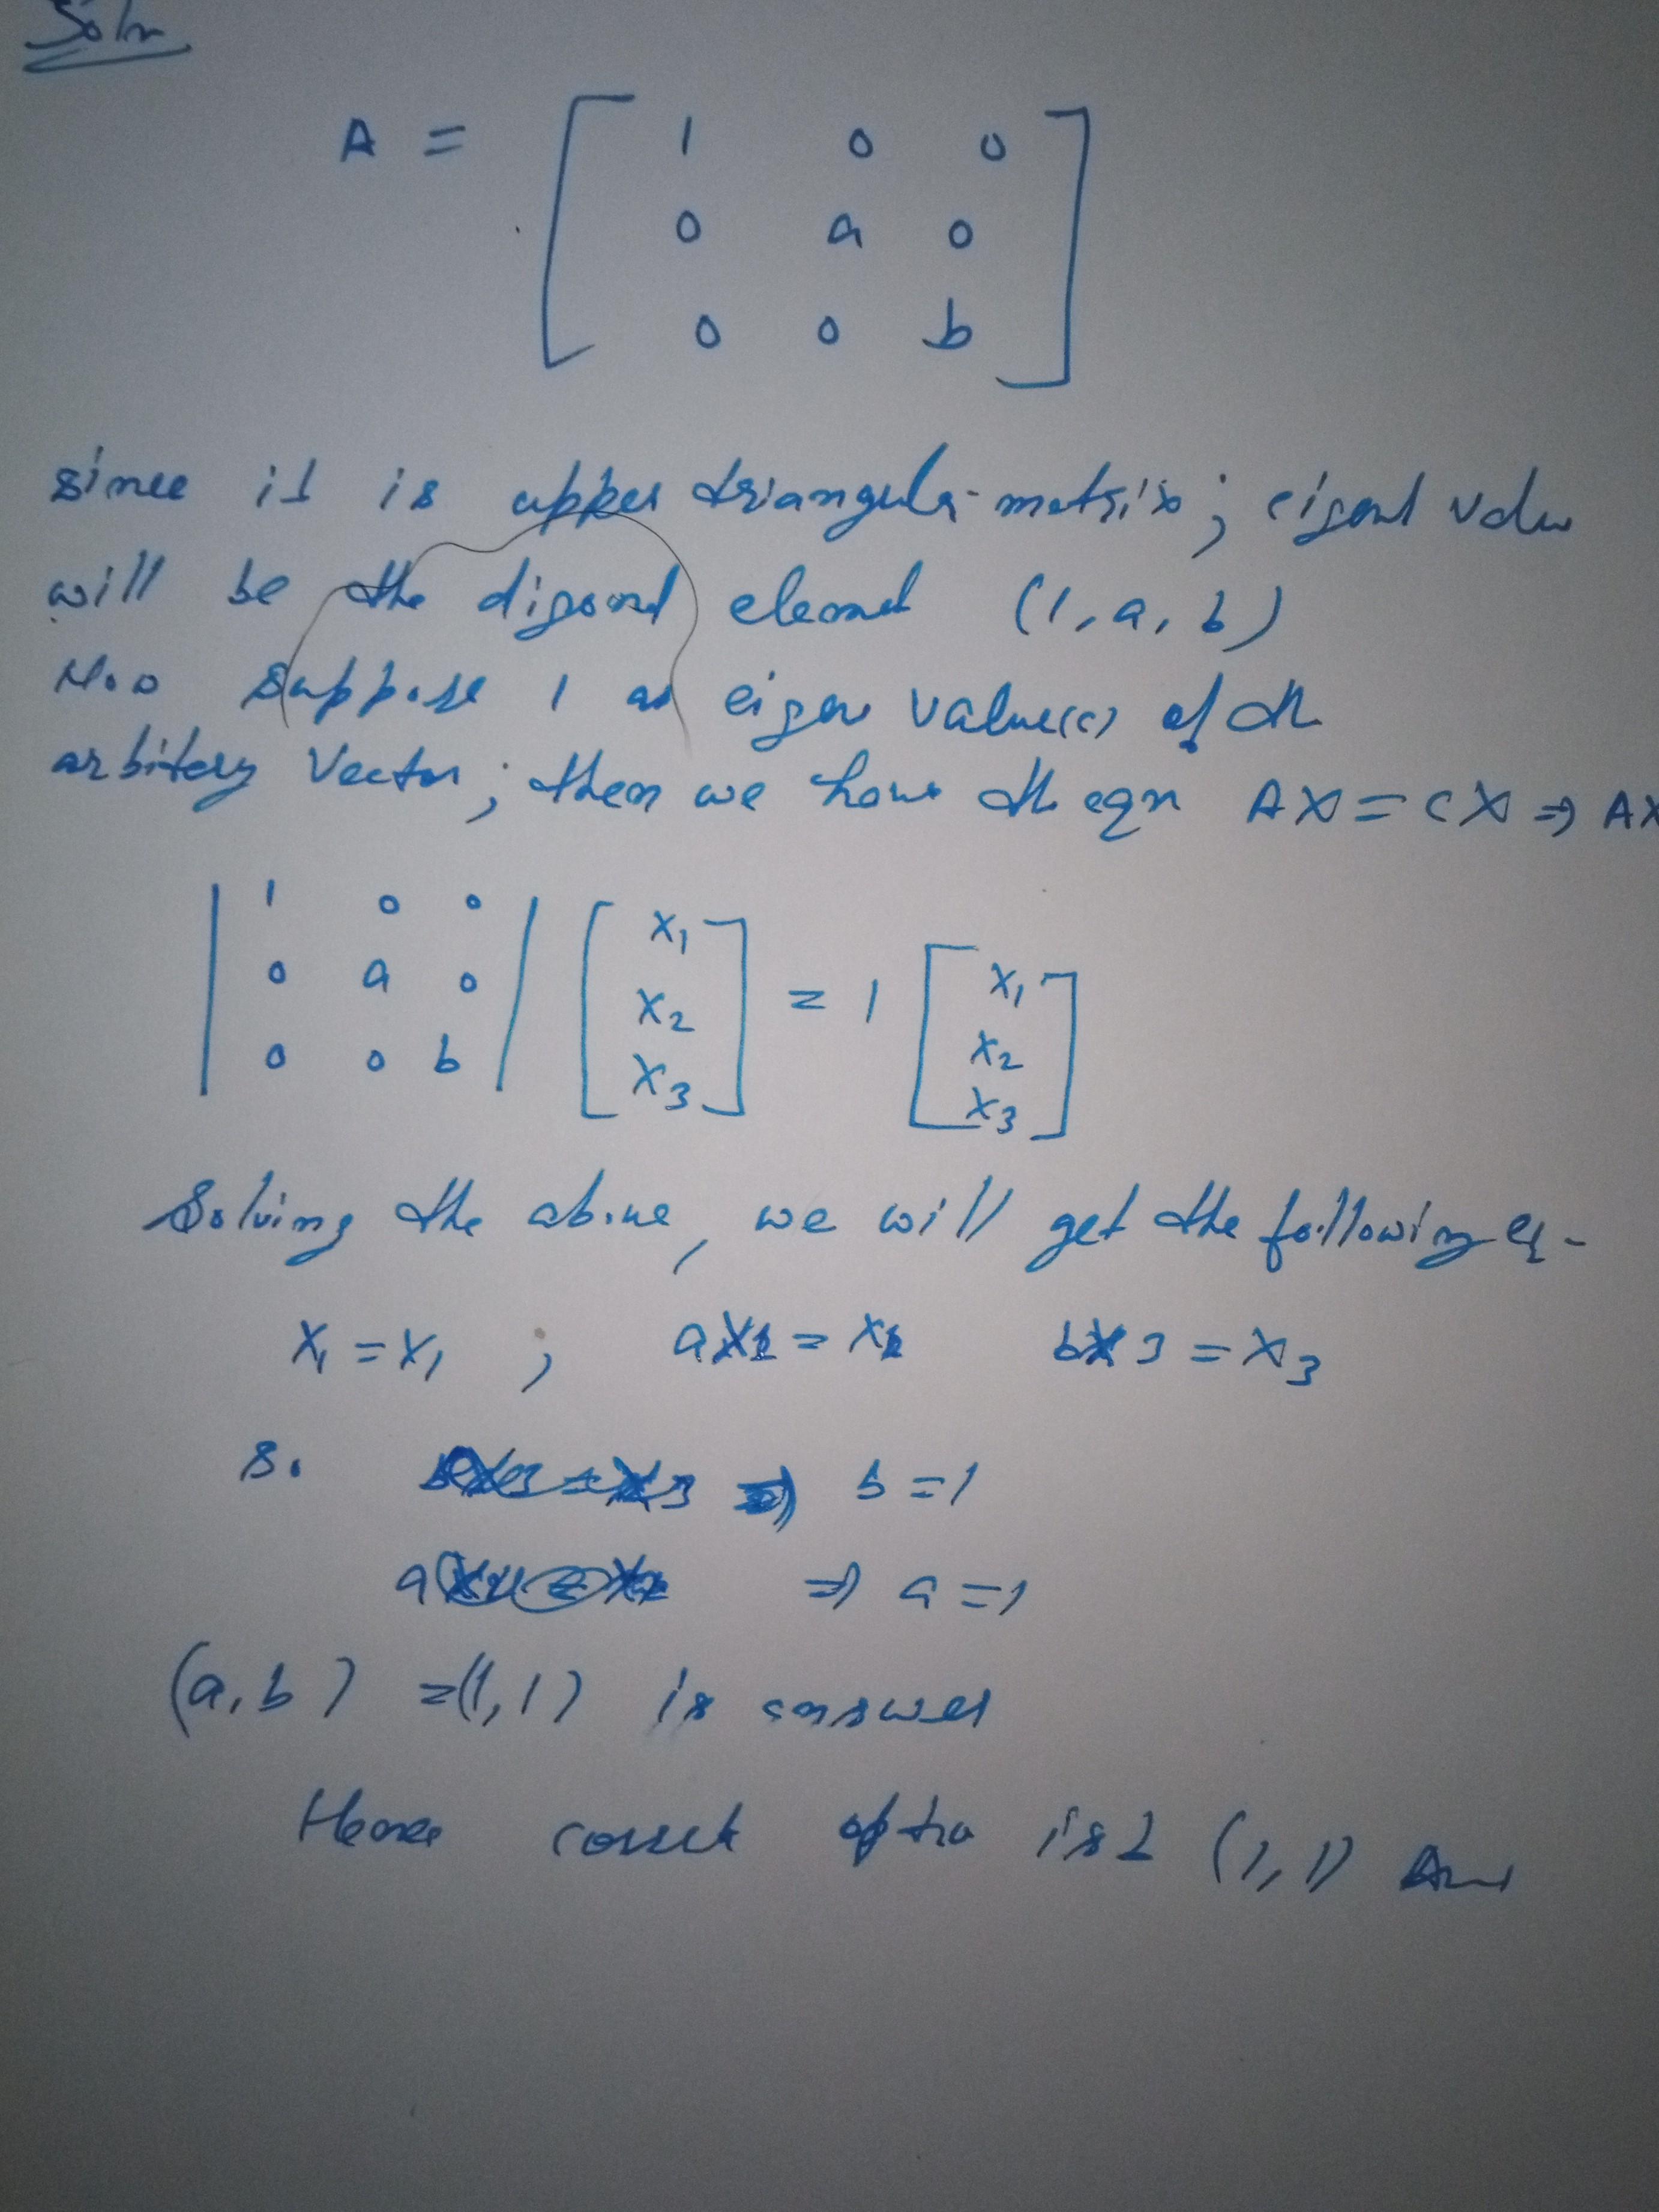 Soln
A = [ 1 0 0
0 a 0
0 0 b ]
since it is upper triangular matrix; eigent value
will be the digonal element (1, a, b)
Now suppose 1 as eigen value(c) of the
arbitary vector; then we have the eqn AX = cX ⇒ AX
| 1 0 0 | [ x1 ] = 1 [ x1 ]
| 0 a 0 | [ x2 ] [ x2 ]
| 0 0 b | [ x3 ] [ x3 ]
Solving the above, we will get the following eq-
x1 = x1 ; ax2 = x2 bx3 = x3
So ⇒ b = 1
a ⇒ a = 1
(a, b) = (1, 1) is answer
Hence correct option is 2 (1, 1) Ans